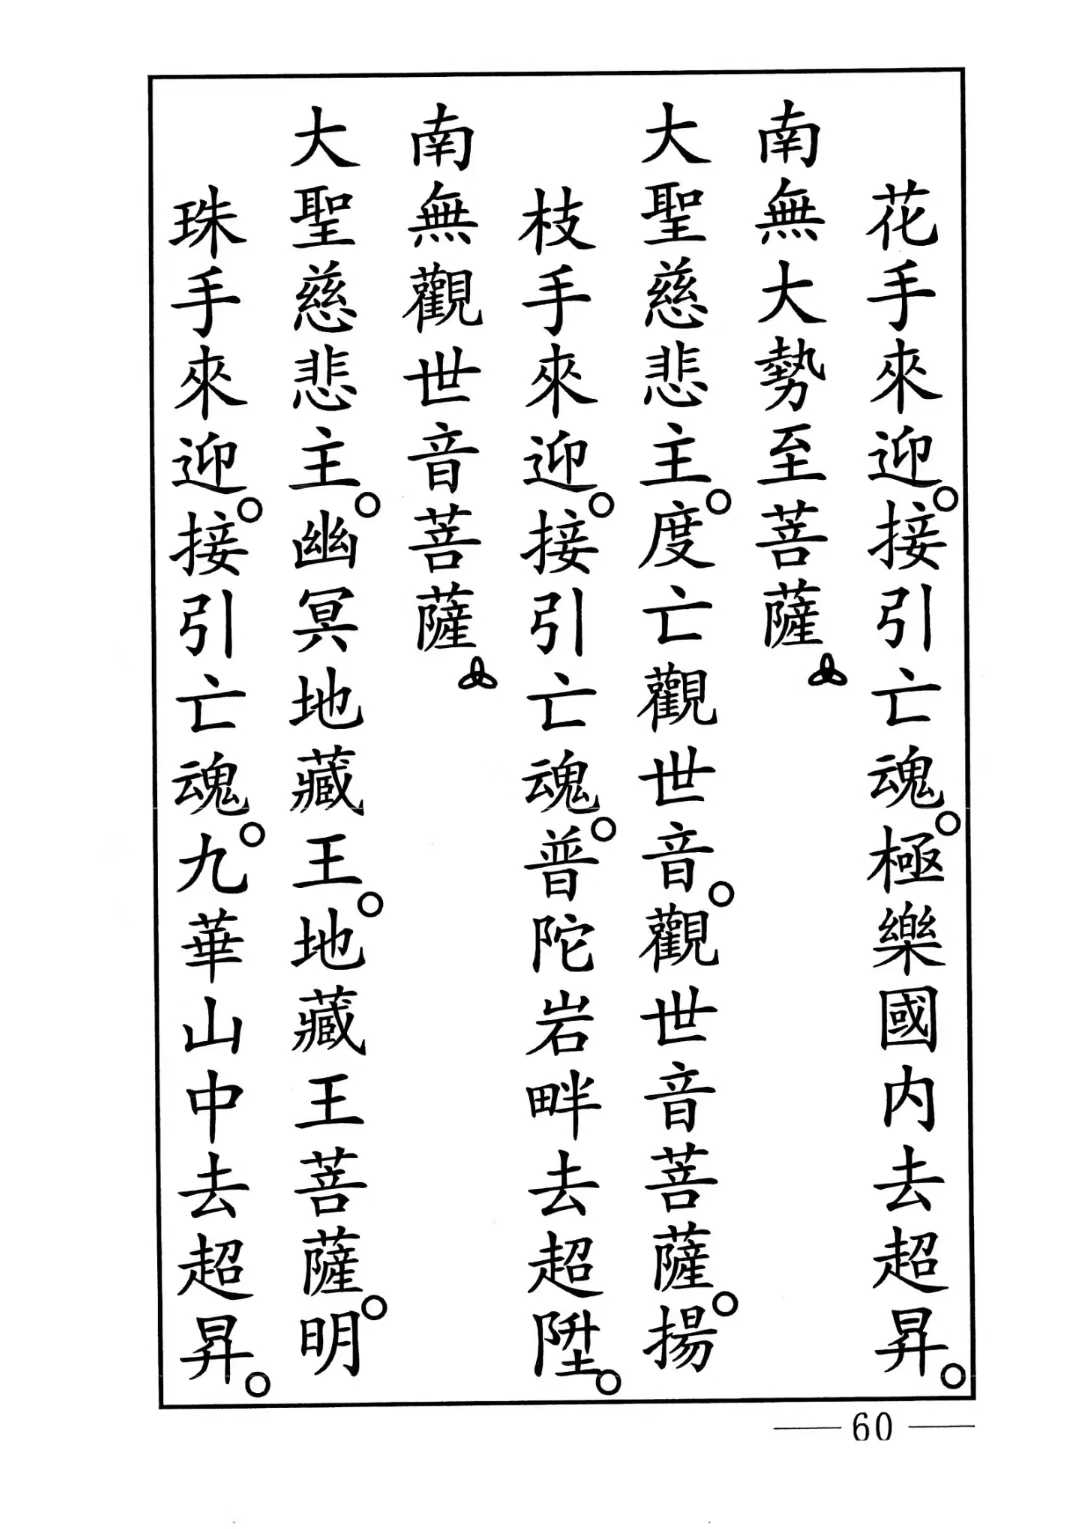 花手來迎。接引亡魂。極樂國内去超昇。
南無大勢至菩薩
大聖慈悲主。度亡觀世音。觀世音菩薩。揚
枝手來迎。接引亡魂。普陀岩畔去超陞。
南無觀世音菩薩
大聖慈悲主。幽冥地藏王。地藏王菩薩。明
珠手來迎。接引亡魂。九華山中去超昇。
60